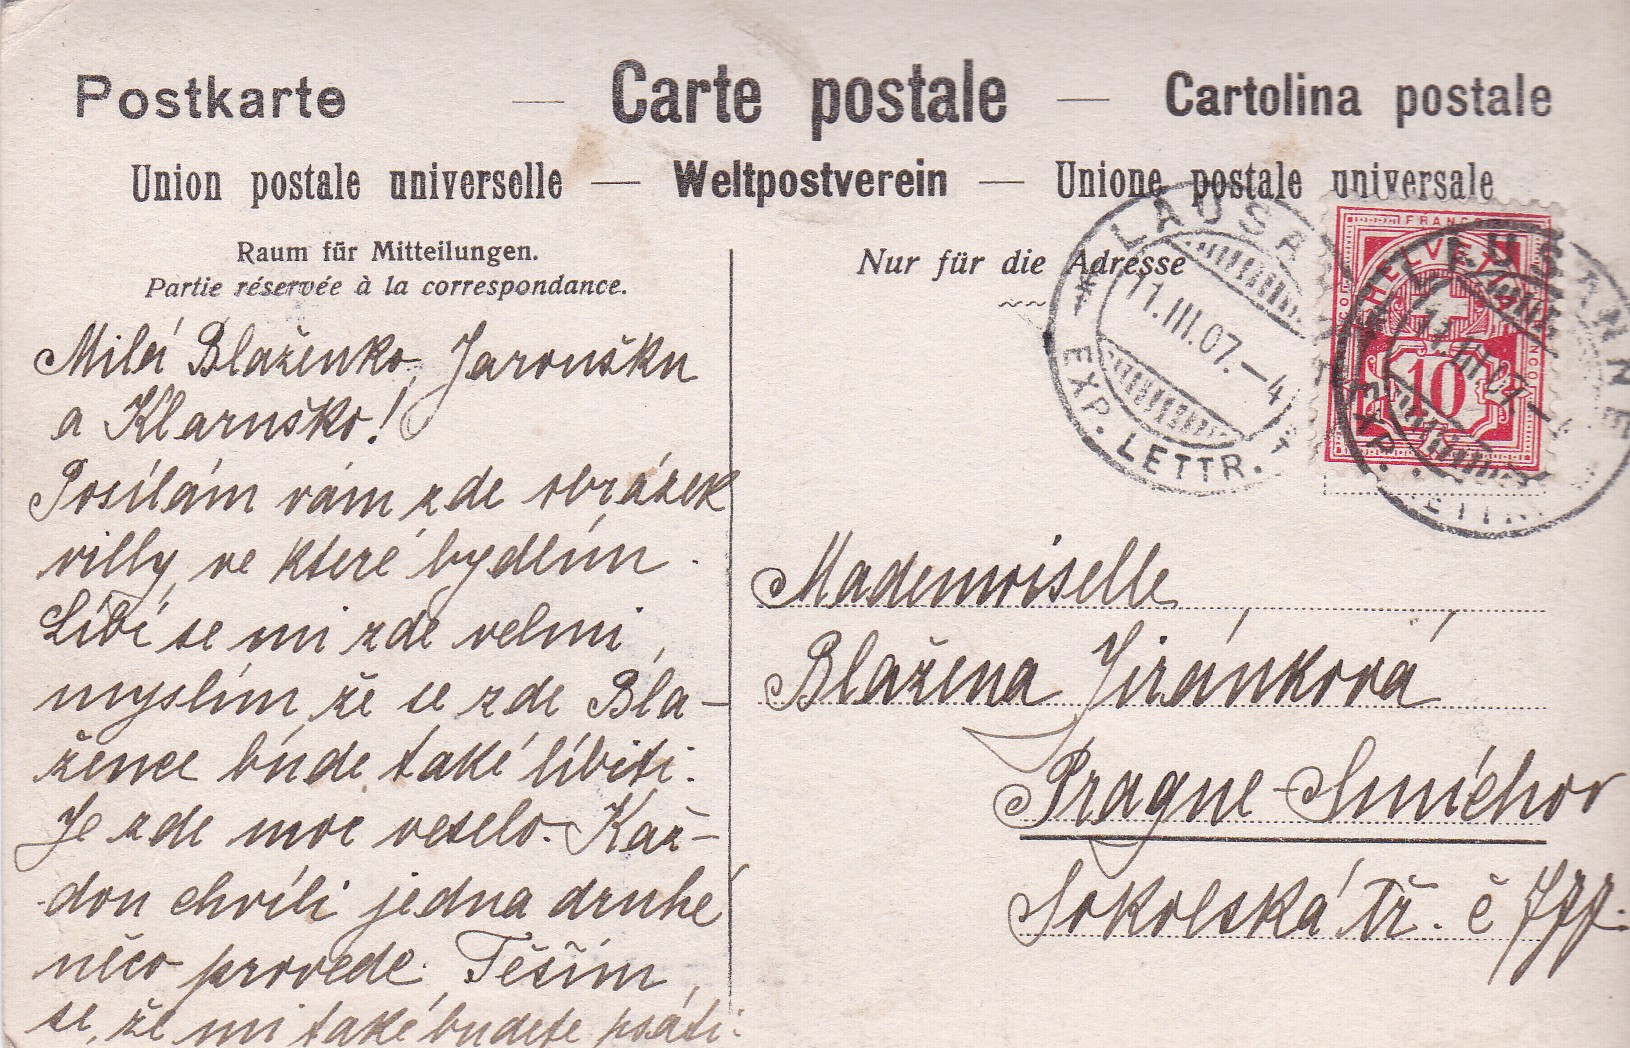 Postkarte — Carte postale — Cartolina postale
Union postale universelle — Weltpostverein — Unione postale universale
Raum für Mitteilungen.
Partie réservée à la correspondance.
Milá Blaženko, Jaroušku
a Klaruško!
Posílám vám zde obrázek
villy, ve které bydlím.
Líbí se mi zde velmi,
myslím, že se zde Bla-
žence bude také líbiti.
Je zde moc veselo. Kaž-
dou chvíli jedna druhé
něco provede. Těším
se, že mi také budete psáti.
Nur für die Adresse
LAUSA
11.III.07.–4
EXP. LETTR.
FRANCO
HELVETIA
10
LAUSANNE
11.III.07–4
EXP. LETTR.
Mademoiselle
Blažena Jiránková
Prague-Smíchov
Sokolská tř. č